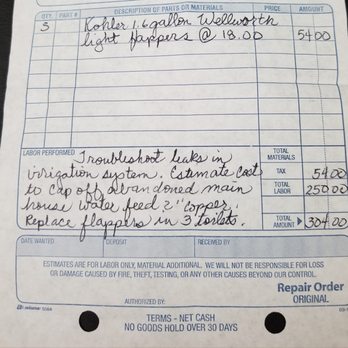 QTY. PART # DESCRIPTION OF PARTS OR MATERIALS PRICE AMOUNT
3 Kohler 1.6 gallon Wellworth
light flappers @ 18.00 54 00
LABOR PERFORMED
TOTAL MATERIALS
Troubleshoot leaks in
irrigation system. Estimate cost TAX 54 00
to Cap off abandoned main TOTAL LABOR 250 00
house water feed 2" copper.
Replace flappers in 3 toilets. TOTAL AMOUNT 304.00
DATE WANTED DEPOSIT RECEIVED BY
ESTIMATES ARE FOR LABOR ONLY, MATERIAL ADDITIONAL. WE WILL NOT BE RESPONSIBLE FOR LOSS
OR DAMAGE CAUSED BY FIRE, THEFT, TESTING, OR ANY OTHER CAUSES BEYOND OUR CONTROL.
Repair Order
ORIGINAL
AUTHORIZED BY:
adams
TERMS - NET CASH
NO GOODS HOLD OVER 30 DAYS